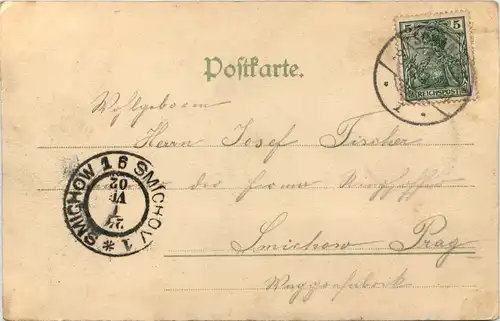 5 5
REICHSPOST
Postkarte.
Wohlgeboren
Herrn Josef Fischer
der Firma Ringhoffer
Smichow Prag
Waggonfabrik
SMICHOW 1 * SMICHOV 1
6
27
VI
02